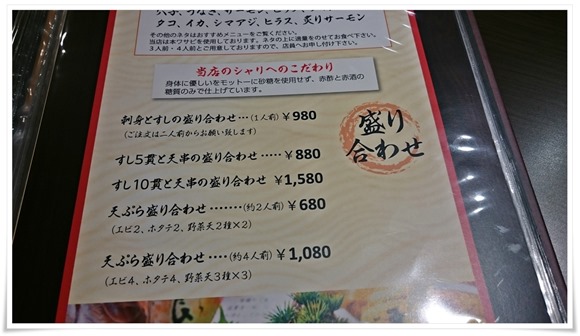 タコ、イカ、シマアジ、ヒラス、炙りサーモン
その他のネタはおすすめメニューをご覧ください。
当店は本ワサビを使用しております。ネタの上に適量をのせてお食べ下さい。
3人前・4人前とご用意しておりますので、店員へお申し付け下さい。
当店のシャリへのこだわり
身体に優しいをモットーに砂糖を使用せず、赤酢と赤酒の
糖質のみで仕上げています。
盛り
合わせ
刺身とすしの盛り合わせ…(1人前)¥980
(ご注文は二人前からお願い致します)
すし5貫と天串の盛り合わせ・・・・・¥880
すし10貫と天串の盛り合わせ ¥1,580
天ぷら盛り合わせ・・・・・・・(約2人前)¥680
(エビ2、ホタテ2、野菜天2種×2)
天ぷら盛り合わせ・・・・(約4人前)¥1,080
(エビ4、ホタテ4、野菜天3種×3)